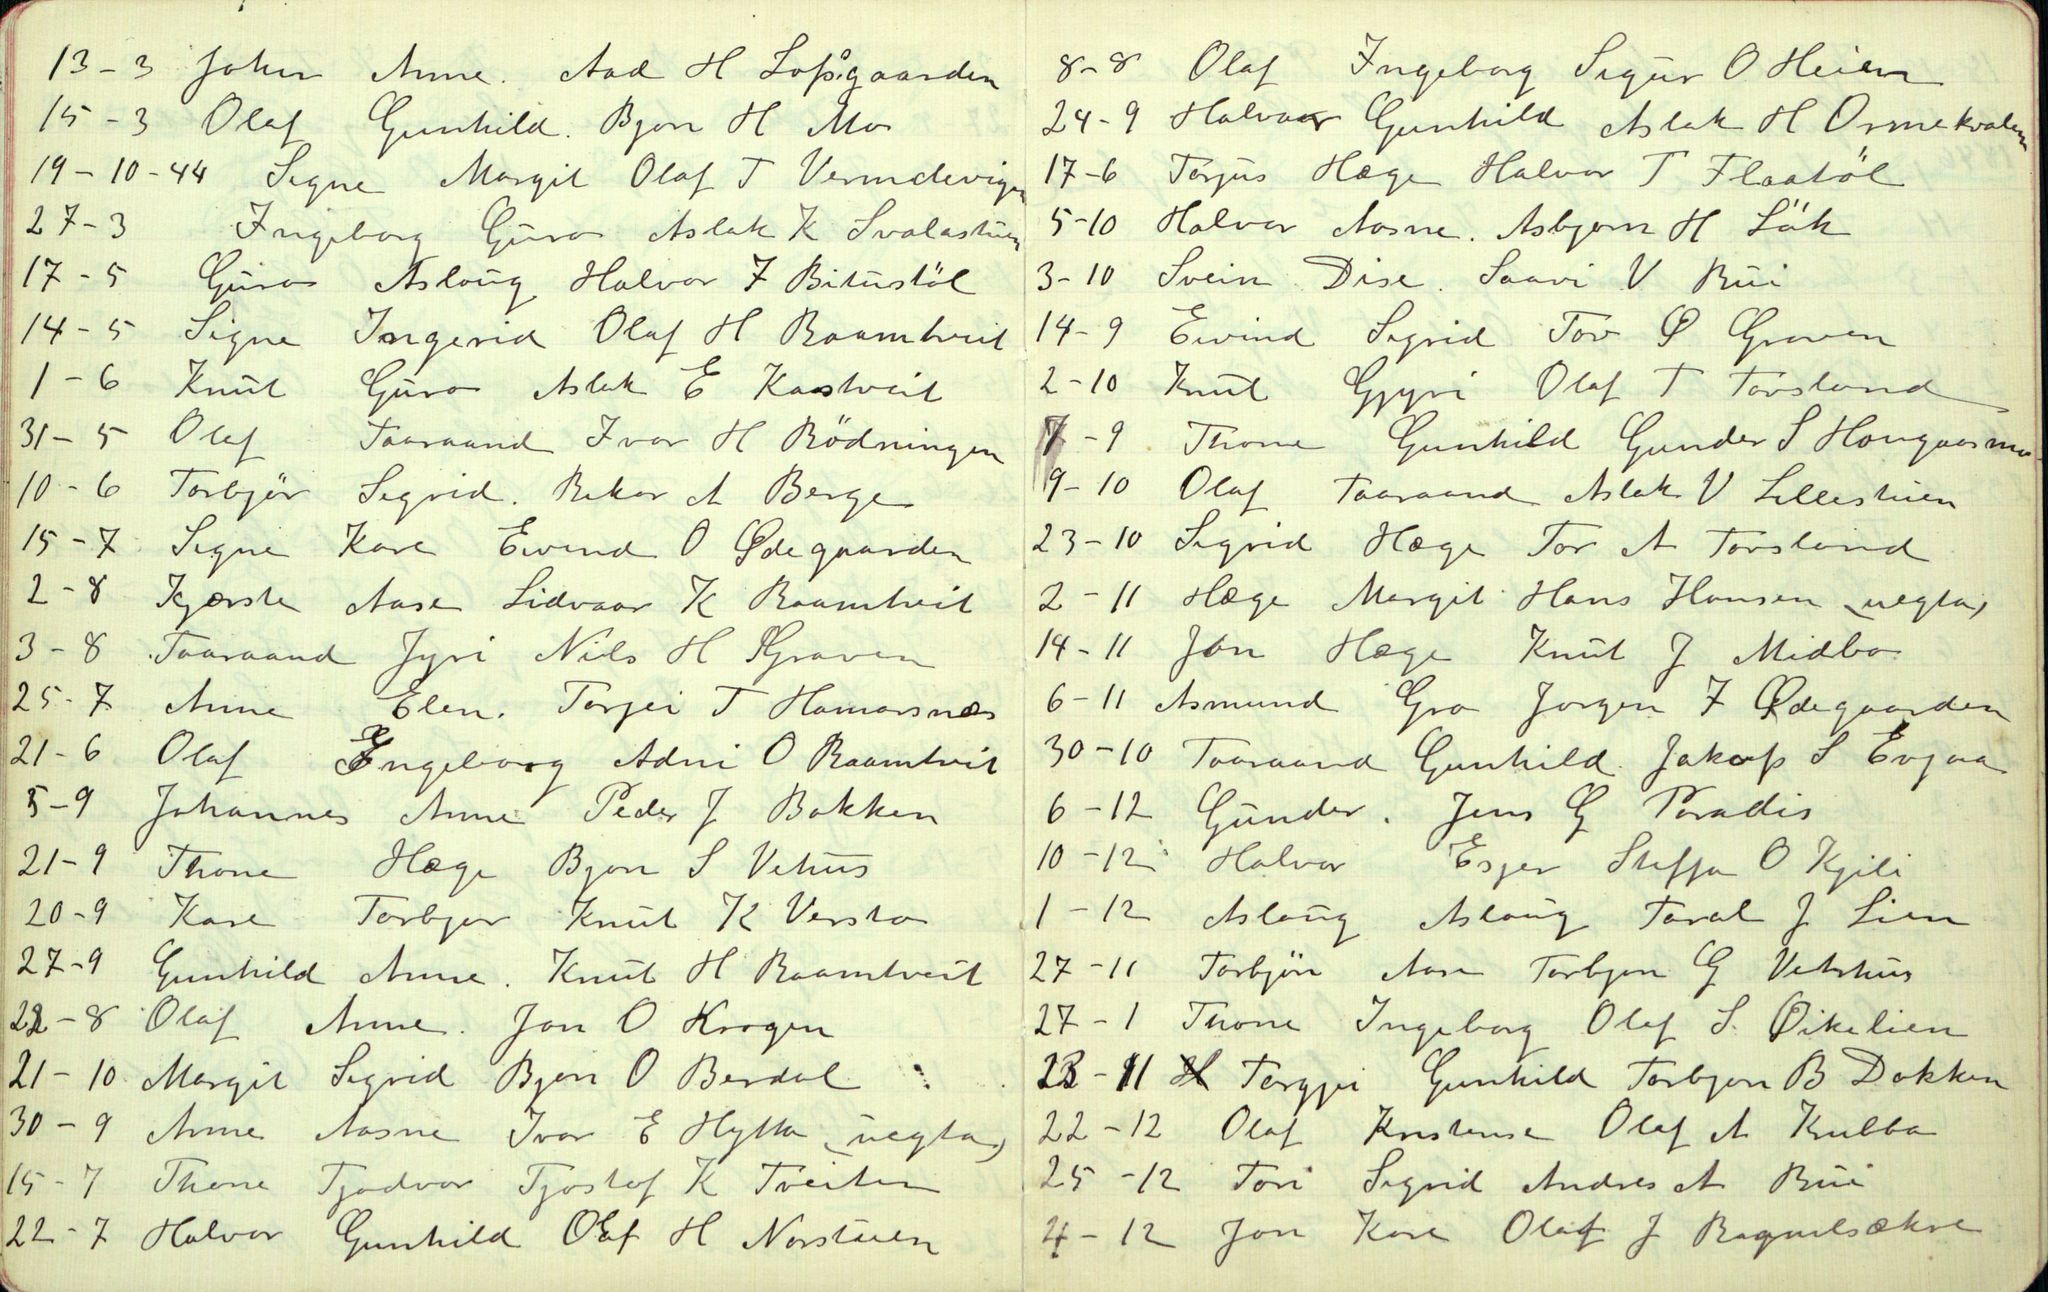 13-3 John Anne. Aad H Loftsgaarden
15-3 Olaf Gunhild. Bjon H Mo
19-10-44 Signe Margit Olaf T Vermdevigen
27-3 Ingeborg Guro Aslak K Svalastuen
17-5 Guro Aslaug Halvor J Bitustöl
14-5 Signe Ingerid Olaf H Raamtveit
1-6 Knut Guro Aslak E Kastveit
31-5 Olaf Taaraand Ivar H Rödningen
10-6 Torbjör Sigrid. Rekar A Berge
15-7 Signe Kare Eivind O Ødegaarden
2-8 Kjerste Aase Lidvaar K Raamtveit
3-8 Taaraand Jyri Nils H Graven
25-7 Anne Elen. Torjei T Hamarsnæs
21-6 Olaf Ingeborg Adni O Raamtveit
5-9 Johannes Anne Peder J Bakken
21-9 Thone Hæge Bjon S Vehus
20-9 Kare Torbjor Knut K Versto
27-9 Gunhild Anne. Knut H Raamtveit
22-8 Olaf Anne. Jon O Krogen
21-10 Margit Sigrid Bjon O Berdal
30-9 Anne Aasne Ivar E Hytta (uegta)
15-7 Thone Tjodvor Tjostof K Tveiten
22-7 Halvor Gunhild Olaf H Norstuen
8-8 Olaf Ingeborg Sigur O Heien
24-9 Halvor Gunhild Aslak H Ormekvalen
17-6 Torjus Hæge Halvor T Flaatöl
5-10 Halvor Aasne. Asbjorn H Lök
3-10 Svein Dise. Saavi V Bui
14-9 Eivind Sigrid Tov Ø Graven
2-10 Knut Gjyri Olaf T Torsland
7-9 Thone Gunhild Gunder S
9-10 Olaf Taaraand Aslak V Lillestuen
23-10 Sigrid Hæge Tor A Torsland
2-11 Hæge Margit Hans Hansen (uegta)
14-11 Jon Hæge Knut J Midbo
6-11 Asmund Gro Jorgen J Ødegaarden
30-10 Taaraand Gunhild. Jakop S Evjaa
6-12 Gunder. Jens G Paradis
10-12 Halvor Esjer Steffa O Kjili
1-12 Aslaug Aslaug Taral J Lien
27-11 Torbjön Aase Torbjon G Vetrhus
27-1 Thone Ingeborg Olaf S. Øikelien
23-11 Torgjei Gunhild Torbjon B Dokken
22-12 Olaf Kristense Olaf A Kulba
25-12 Tori Sigrid Andres A Bui
4-12 Jon Kare Olaf J Ragnilsækre